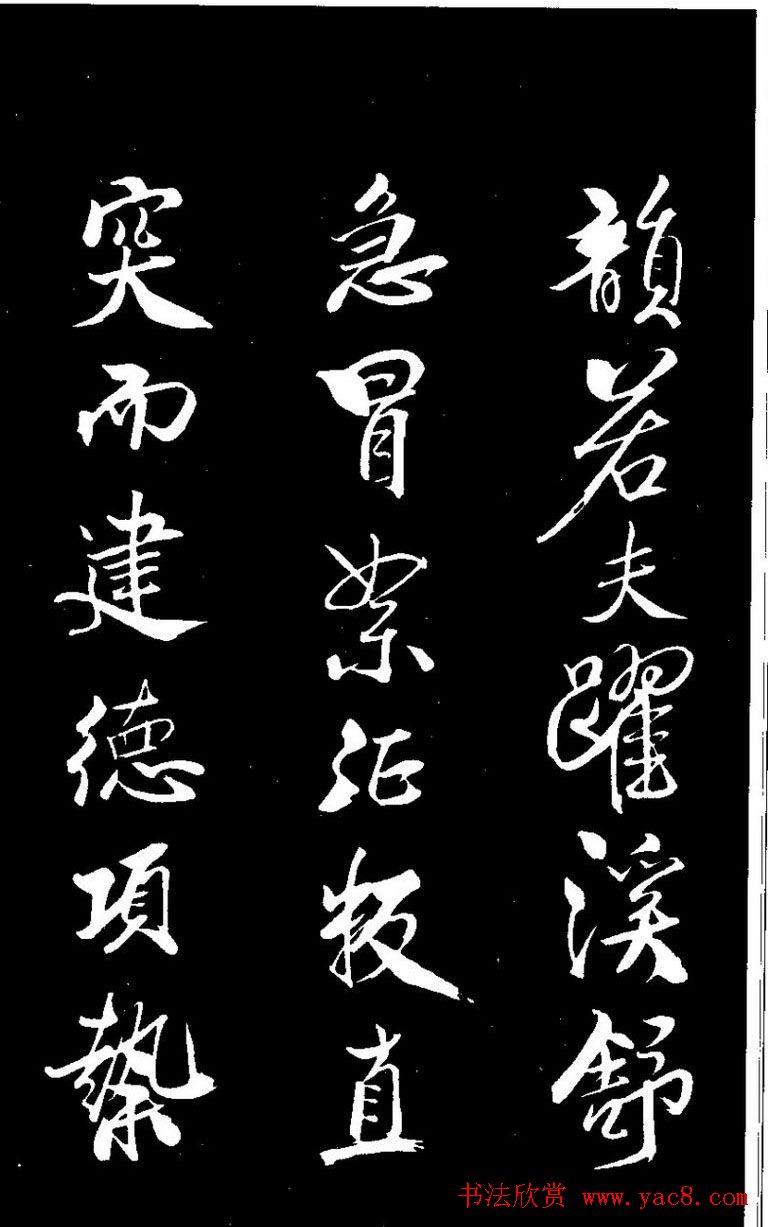 韻若夫躍溪舒
急冒絮征叛直
突而建德項縶
书法欣赏 www.yac8.com